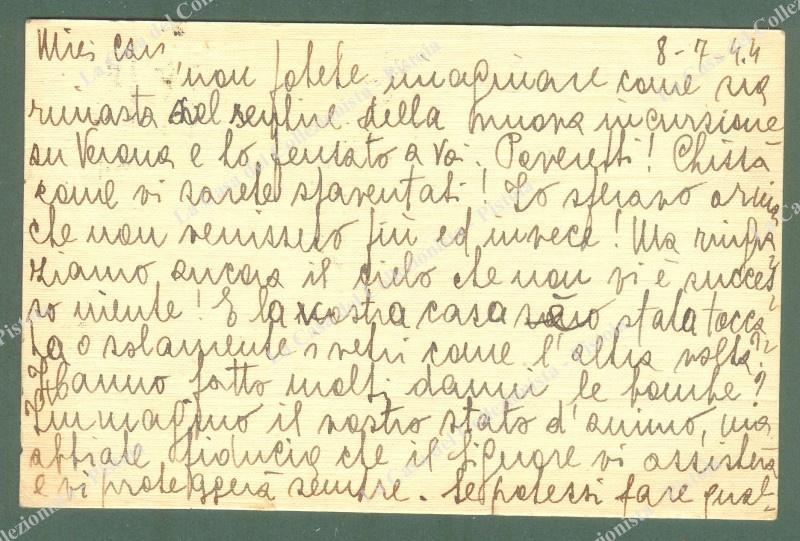 Miei cari 8-7 44
non potete imaginare come sia
rimasta nel sentire della nuova incursione
su Verona e ho pensato a voi. Poveretti! Chissà
come vi sarete spaventati! Io speravo ormai
che non venissero più ed invece! Ma ringra-
ziamo ancora il cielo che non vi è succes-
so niente! E la vostra casa è stata tocca-
ta o solamente i vetri come l'altra volta??
Hanno fatto molti danni le bombe?
Immagino il vostro stato d'animo, ma
abbiate fiducia che il Signore vi assisterà
e vi proteggerà sempre. Se potessi fare qual-